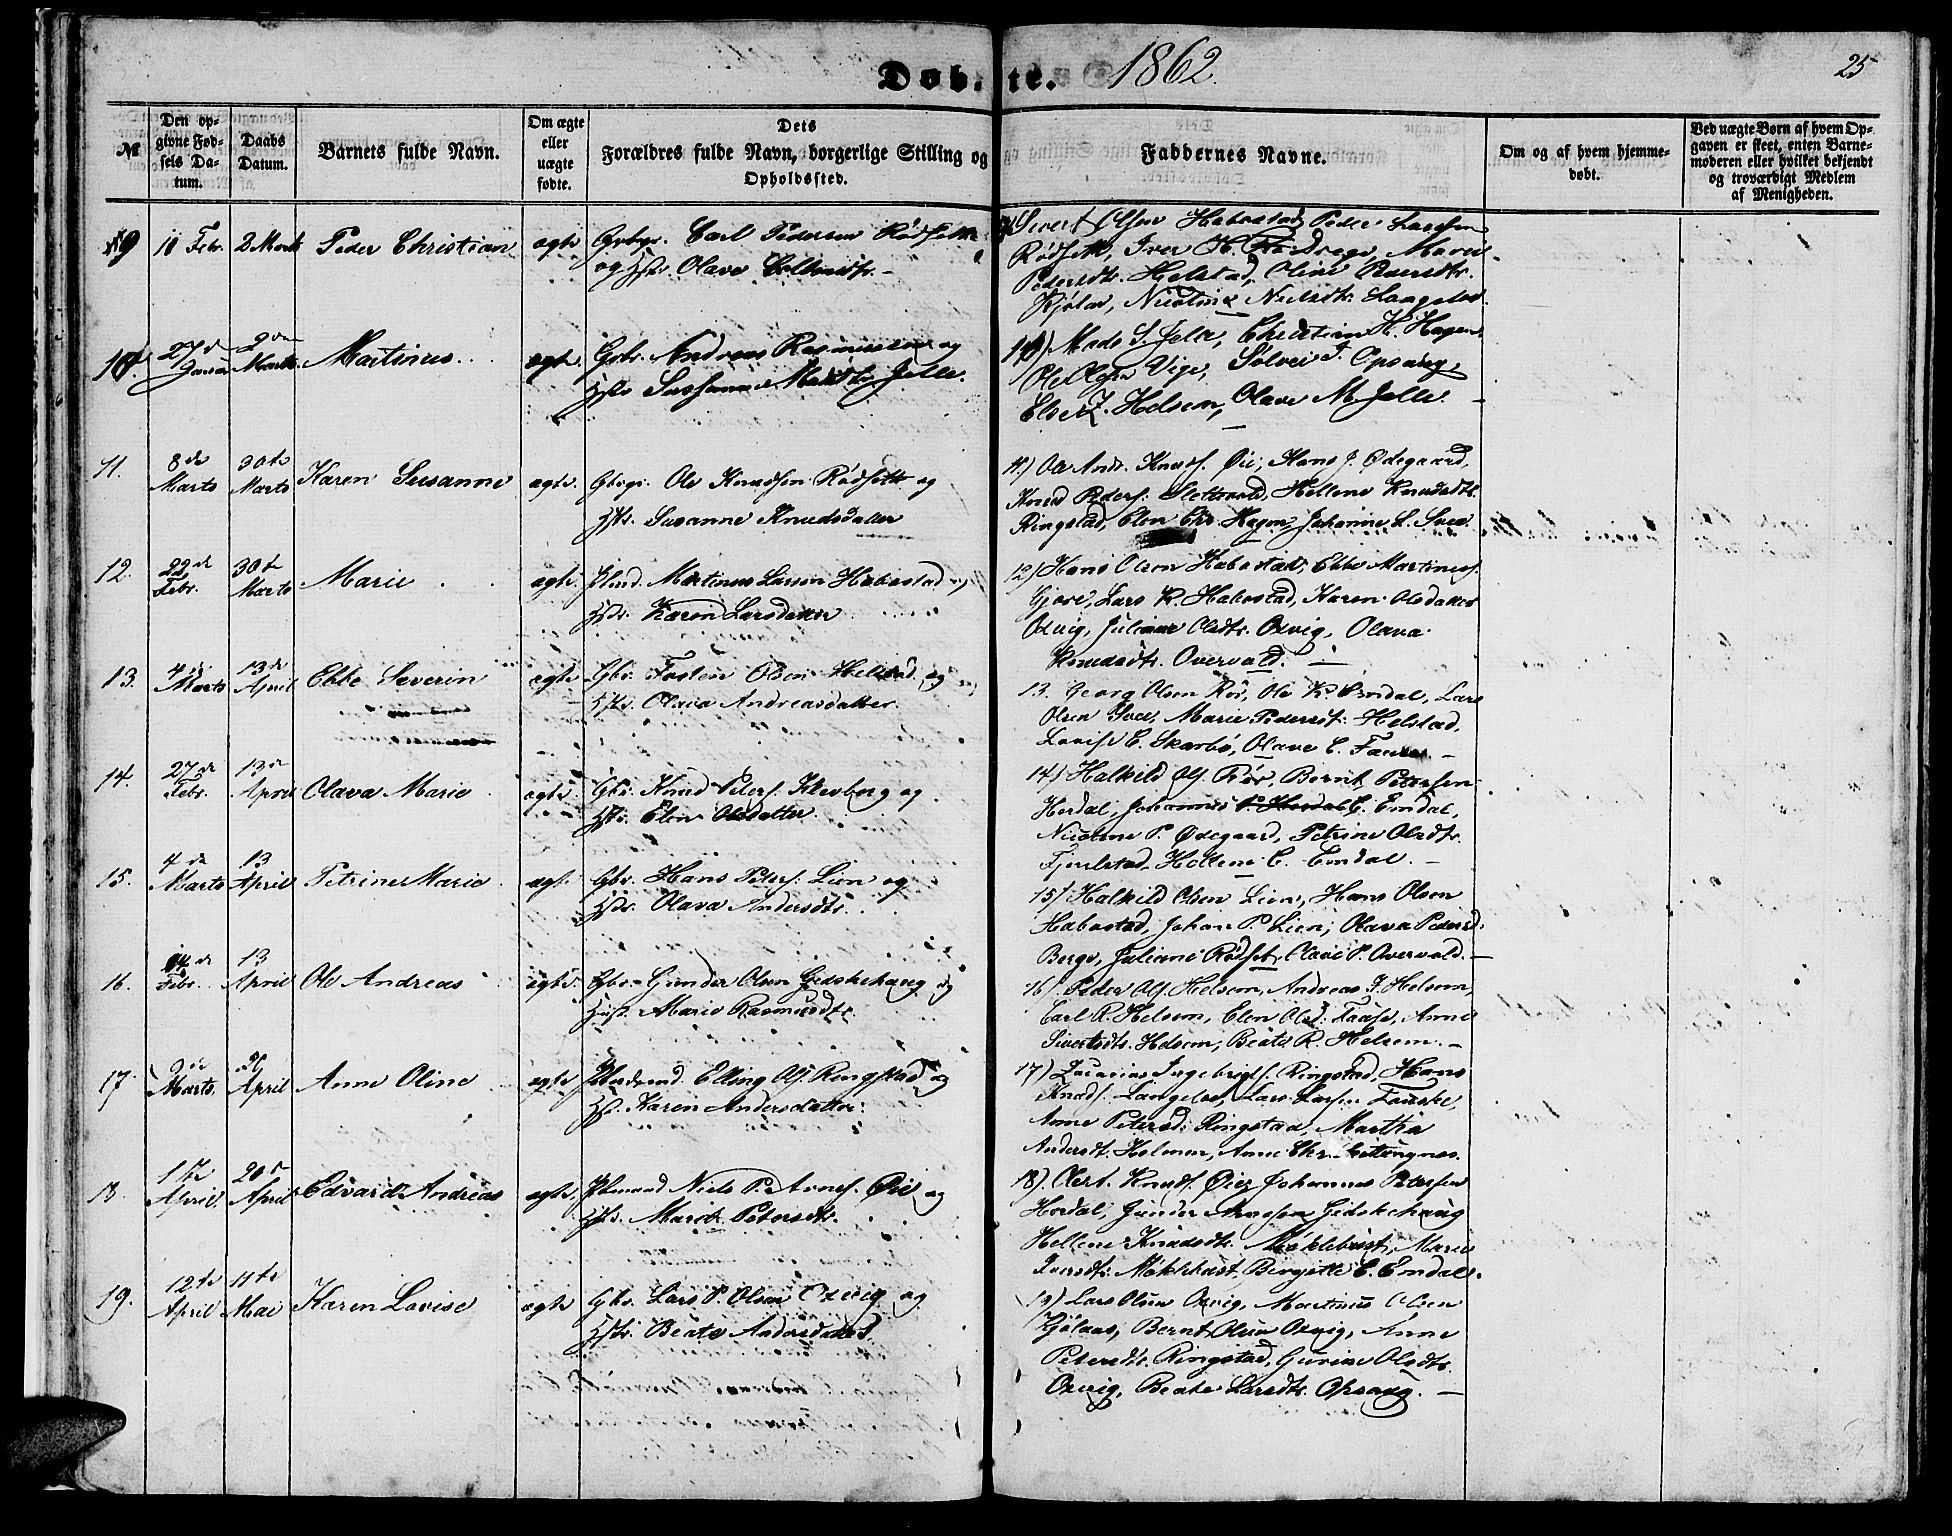 Døbte. 1862.
25
№
Den opgivne Fødsels Datum.
Daabs Datum.
Barnets fulde Navn.
Om ægte eller uægte fødte.
Dets Forældres fulde Navn, borgerlige Stilling og Opholdssted.
Faddernes Navne.
Om og af hvem hjemmedøbt.
Ved uægte Børn af hvem Opgaven er skeet, enten Barnemoderen eller hvilket bekjendt og troværdigt Medlem af Menigheden.
9 Febr. 2 Marts Peder Christian ægte Carl Pedersen Rødseth
og Hstr. Olave
Sivert Olsen Habostad, Peder Larssen
Rødseth, Iver H. Marie
Pedersdtr. Helstad, Oline Pedersdtr.
Nicoline Nielsdtr. Langeland
10 27de Janua 2den Marts Martinus ægte Gbr. Andreas Rasmussen og
Hstr. Susanne Jelle.
Mads S. Jelle, Christian H. Hagen
Ole Olsen Vige, Sølvei J. Opsaug,
Else Z. Helsem, Olave M. Jelle.
11. 8de Marts 30te Marts Karen Susanne ægte Gbrgr. Ole Knudsen Rødseth og
Hstr. Susanne Knudsdatter
11.) Ole And. Knuds. Øie, Hans J. Ødegaard,
Knud Peders. Slettevold, Hellene Knudsdtr.
Ringstad, Elen Chr. Hagen, Johanne L. Svee.
12. 22de Febr. 30te Marts Marie ægte Martinus Larsen Habostad og
Hstr. Karen Larsdatter
12) Hans Olsen Habostad, Ebbe Martinus.
Gjøre, Lars K. Habostad, Karen Olsdatter
Oxvig, Juliane Olsdtr. Oxvig, Olava
Knudsdtr. Overvold.
13. 4de Marts 13de April Ebbe Severin ægte Gbr. Tosten Olsen Helstad og
Hstr. Olava Andreasdatter.
13. Georg Olsen Rør, Ole K. Emdal, Lars
Olsen Svee, Marie Pedersdt. Helstad,
Lovise E. Skarbø, Olave C.
14. 27de Febr. 13de April Olava Marie ægte Gbr. Knud Peters. Klevberg og
Hstr. Elen Olsdatter.
14) Halkild Ols. Rør, Bernt Petersen
Herdal, Johannes C. Emdal,
Nicoline P. Ødegaard, Petrine Olsdtr.
Fjørstad, Hellene C. Emdal.
15. 4de Marts 13 April Petrine Marie ægte Gbr. Hans Peters. Lien og
Hstr. Olava Andersdtr.
15) Halkild Olsen Lien, Hans Olsen
Habostad, Johan P. Lien, Olava Pedersd.
Berge, Juliane Rødset, Olave P. Overvold.
16. Febr. 13 April Ole Andreas ægte Gbr. Gunder Olsen Gidskehaug og
Hustr. Marie Rasmusdtr.
16) Peder Ols. Helsem, Andreas J. Helsem,
Carl R. Helsem, Elen Olsd. Fauske, Anne
Sivertsdtr. Helsem, Beate R. Helsem.
17. Marts. April Anne Oline ægte Elling Ols. Ringstad og
Hstr. Karen Andersdatter.
17) Ingebrigts. Ringstad, Hans
Knuds. Langeland, Lars Lars. Fauske,
Anne Petersd. Ringstad, Martha
Andersdt. Holmen, Anne Chr.
18 1ste April. 20de April Edvard Andreas ægte Niels P. Arnes. Øie og
Hstr. Marit Petersdtr.
18). Olert. Knuds. Øie, Johannes Petersen
Herdal, Gunder Arnesen Gidskehaug
Hellene Knudsdtr. Møklebust, Marie
Iversdtr. Møklebust, Bergitte C. Emdal.
19. 12te April 11te Mai Karen Lovise ægte Gbr. Lars P. Olsen Oxvig og
Hstr. Beate Andersdatter.
19) Lars Olsen Oxvig, Martinus Olsen
Bernt Olsen Oxvig, Anne
Petersdtr. Ringstad, Gurine Olsdtr.
Oxvig, Beate Larsdtr. Opsaug.